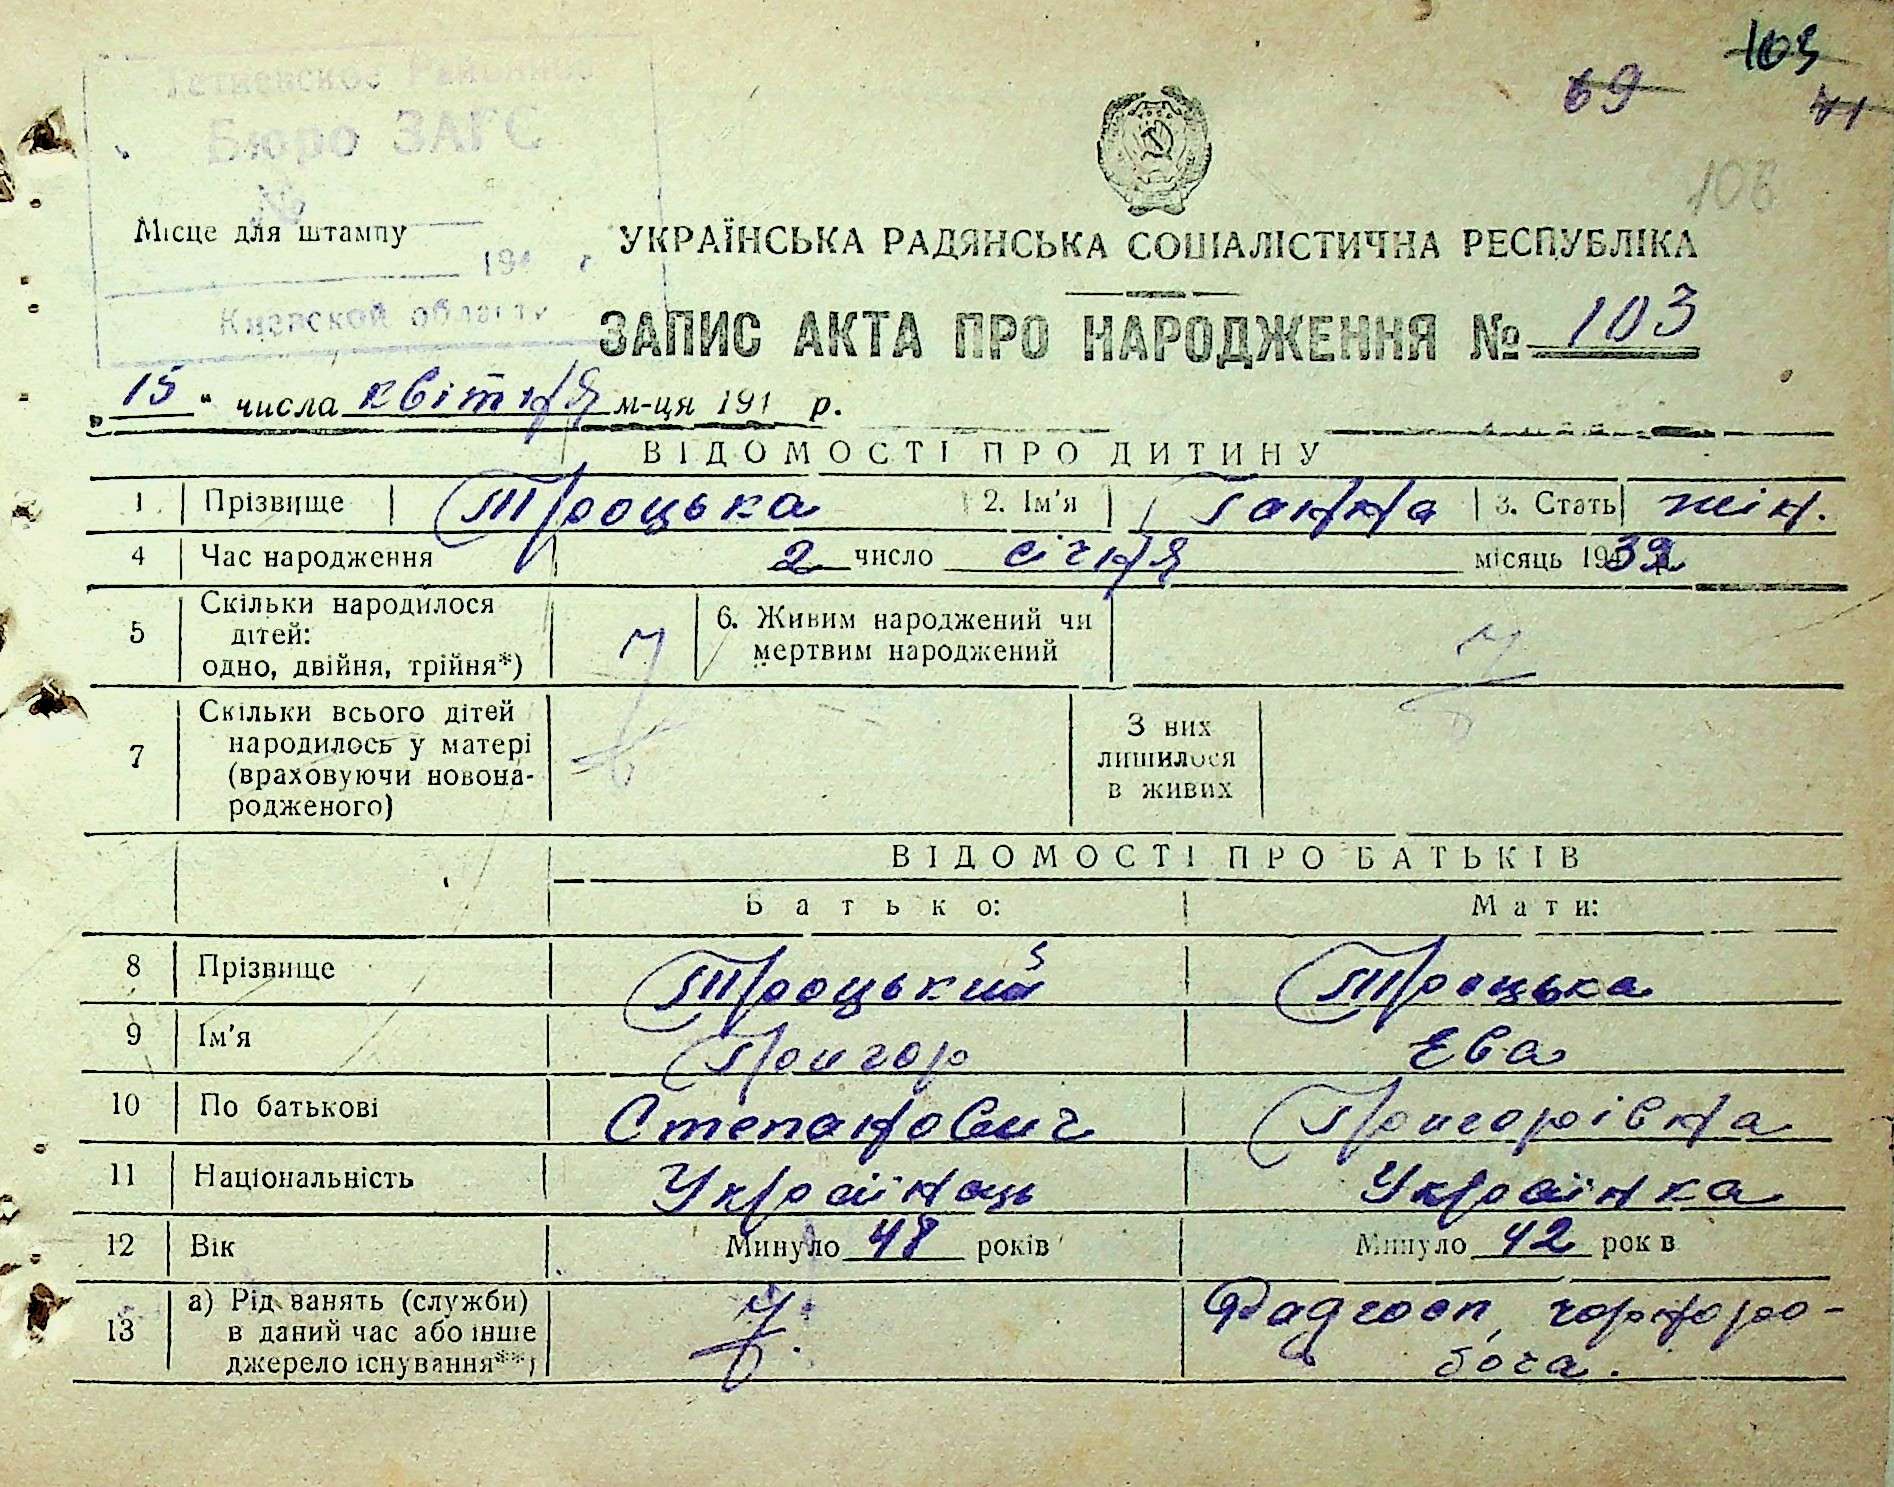 103
69
71
103
Тетиевское Районное
Бюро ЗАГС
№
Місце для штампу
194 г
Киевской области
УКРАЇНСЬКА РАДЯНСЬКА СОЦІАЛІСТИЧНА РЕСПУБЛІКА
ЗАПИС АКТА ПРО НАРОДЖЕННЯ № 103
„15" числа квітня м-ця 194 р.
ВІДОМОСТІ ПРО ДИТИНУ
1 Прізвище Троцька 2. Ім'я Ганна 3. Стать жін.
4 Час народження 2 число січня місяць 1939
5 Скільки народилося дітей: одно, двійня, трійня*) 6. Живим народжений чи мертвим народжений
7 Скільки всього дітей народилось у матері (враховуючи новона-родженого) З них лишилося в живих
ВІДОМОСТІ ПРО БАТЬКІВ
Батько: Мати:
8 Прізвище Троцький Троцька
9 Ім'я Григор Ева
10 По батькові Степанович Григорівна
11 Національність Українець Українка
12 Вік Минуло 48 років Минуло 42 років
13 а) Рід занять (служби) в даний час або інше джерело існування**) Радгосп, чорноро-
боча.